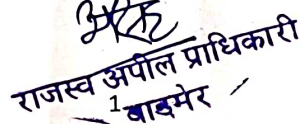 राजस्व अपील प्राधिकारी
1
बाडमेर